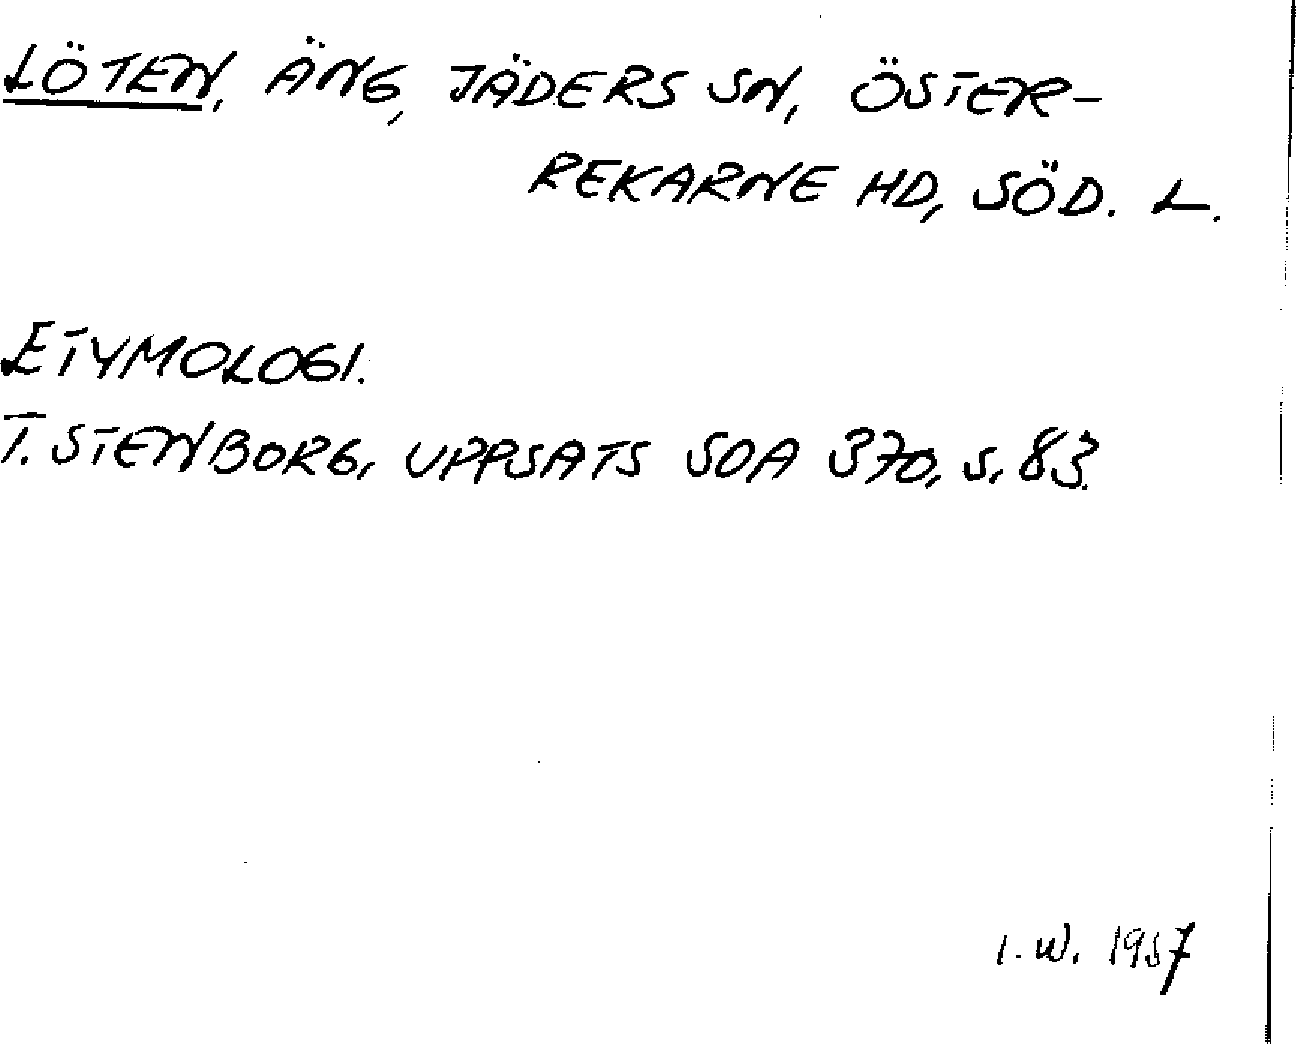 LÖTEN, ÄNG, JÄDERS SN, ÖSTER-
REKARNE HD, SÖD. L.
ETYMOLOGI.
T. STENBORG, UPPSATS SOA 370, S. 83.
I. W. 1957